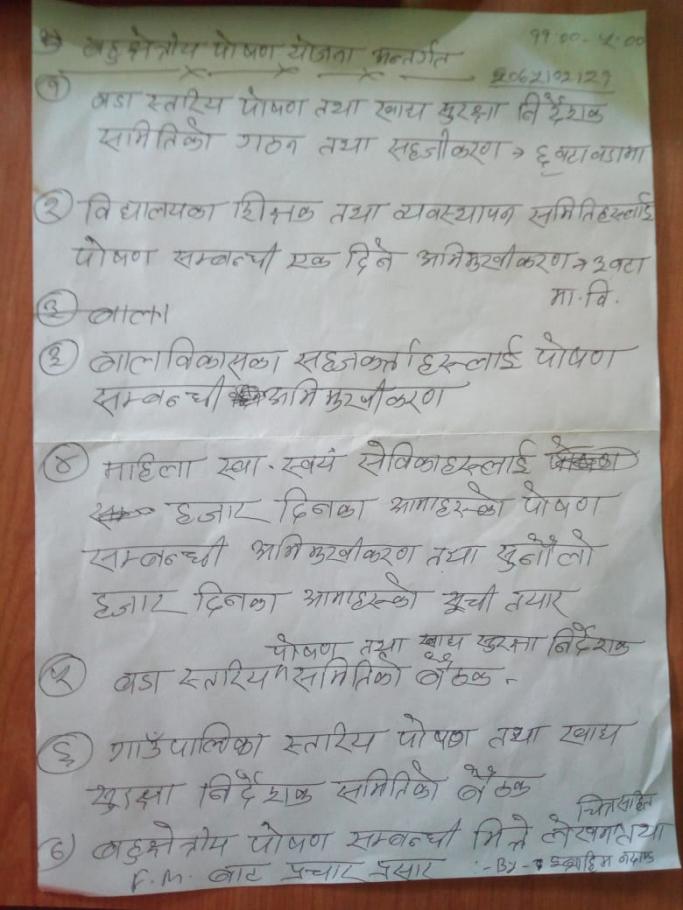 बहुक्षेत्रीय पोषण योजना अन्तर्गत
११:००-५:००
२०७६/०२/२१
१ वडा स्तरिय पोषण तथा खाद्य सुरक्षा निर्देशक
समितिको गठन तथा सहजीकरण → ६ वटा वडामा
२ विद्यालयका शिक्षक तथा व्यवस्थापन समितिहरुलाई
पोषण सम्बन्धी एक दिने अभिमुखीकरण → ३ वटा
मा.वि.
३ बाल
३ बालविकासका सहजकर्ताहरुलाई पोषण
सम्बन्धी अभिमुखीकरण
४ माहिला स्वा. स्वयं सेविकाहरुलाई
हजार दिनका आमाहरुको पोषण
सम्बन्धी अभिमुखीकरण तथा सुनौलो
हजार दिनका आमाहरुको सूची तयार
पोषण तथा खाद्य सुरक्षा निर्देशक
५ वडा स्तरिय समितिको बैठक -
६ गाउँपालिका स्तरिय पोषण तथा खाद्य
सुरक्षा निर्देशक समितिको बैठक
चित्र सहित
७ बहुक्षेत्रीय पोषण सम्बन्धी भित्ते लेखन तथा
F.M. बाट प्रचार प्रसार :- By -